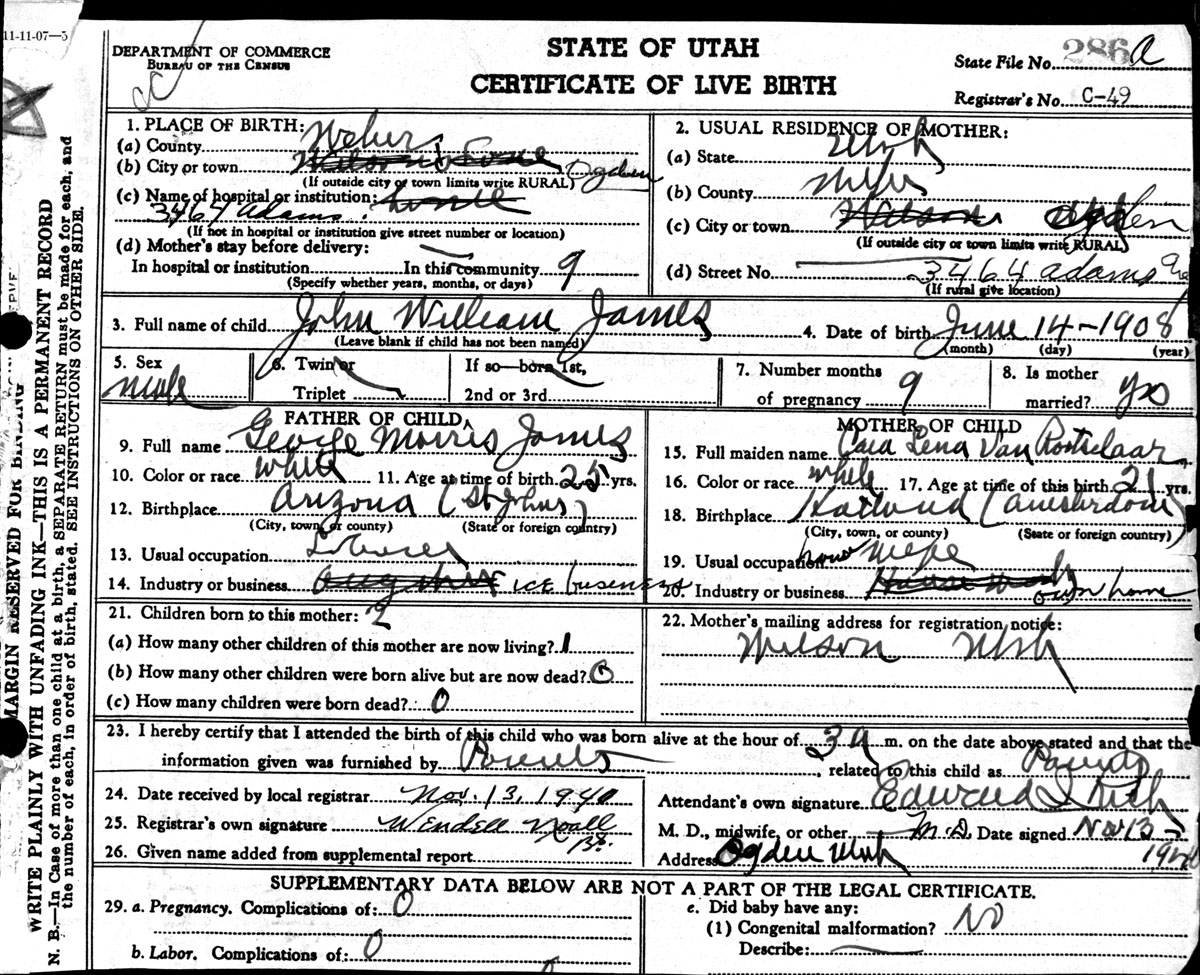 11-11-07—5
DEPARTMENT OF COMMERCE
BUREAU OF THE CENSUS
STATE OF UTAH
CERTIFICATE OF LIVE BIRTH
State File No. 286 a
Registrar's No. C-49
MARGIN RESERVED FOR BINDING
WRITE PLAINLY WITH UNFADING INK—THIS IS A PERMANENT RECORD
N. B.—In Case of more than one child at a birth, a SEPARATE RETURN must be made for each, and
the number of each, in order of birth, stated. SEE INSTRUCTIONS ON OTHER SIDE.
1. PLACE OF BIRTH:
(a) County Weber
(b) City or town Wilson Lane Ogden
(If outside city or town limits write RURAL)
(c) Name of hospital or institution:
3464 Adams
(If not in hospital or institution give street number or location)
(d) Mother's stay before delivery:
In hospital or institution In this community 9
(Specify whether years, months, or days)
2. USUAL RESIDENCE OF MOTHER:
(a) State Utah
(b) County Weber
(c) City or town Wilson Ogden
(If outside city or town limits write RURAL)
(d) Street No. 3464 Adams Ave
(If rural give location)
3. Full name of child John William James
(Leave blank if child has not been named)
4. Date of birth June 14-1908
(month) (day) (year)
5. Sex
Male
6. Twin or
Triplet
If so—born 1st,
2nd or 3rd
7. Number months
of pregnancy 9
8. Is mother
married? yes
FATHER OF CHILD
9. Full name George Morris James
10. Color or race White 11. Age at time of birth 25 yrs.
12. Birthplace Arizona (St Johns)
(City, town, or county) (State or foreign country)
13. Usual occupation Laborer
14. Industry or business ICE business
MOTHER OF CHILD
15. Full maiden name Lena Van Rootselaar
16. Color or race white 17. Age at time of this birth 21 yrs.
18. Birthplace Holland (Amsterdam)
(City, town, or county) (State or foreign country)
19. Usual occupation house wife
20. Industry or business House work own home
21. Children born to this mother: 2
(a) How many other children of this mother are now living? 1
(b) How many other children were born alive but are now dead? 0
(c) How many children were born dead? 0
22. Mother's mailing address for registration notice:
Wilson Utah
23. I hereby certify that I attended the birth of this child who was born alive at the hour of 3 A m. on the date above stated and that the
information given was furnished by Parents, related to this child as Parents
24. Date received by local registrar Nov. 13, 1940
25. Registrar's own signature Wendell Noall
26. Given name added from supplemental report
Attendant's own signature Edward I Rich
M. D., midwife, or other M.D. Date signed Nov 13-
Address Ogden Utah 1940
SUPPLEMENTARY DATA BELOW ARE NOT A PART OF THE LEGAL CERTIFICATE.
29. a. Pregnancy. Complications of: 0
b. Labor. Complications of: 0
e. Did baby have any:
(1) Congenital malformation? NO
Describe: